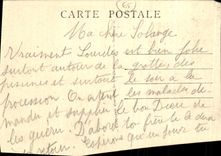 (65)
CARTE POSTALE
Ma chère Solange
Vraiment Lourdes est bien jolie
surtout autour de la grottes des
piscines et surtout le soir à la
procession. On entend les malades de-
mander et supplier le bon Dieu de
les guérir. D'abord tu
retour. Espérons qu'un jour tu